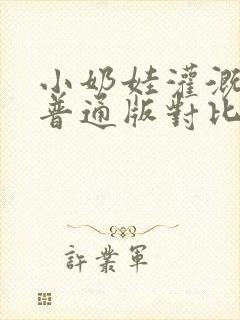 小奶娃灌溉
普通版對比
許業軍